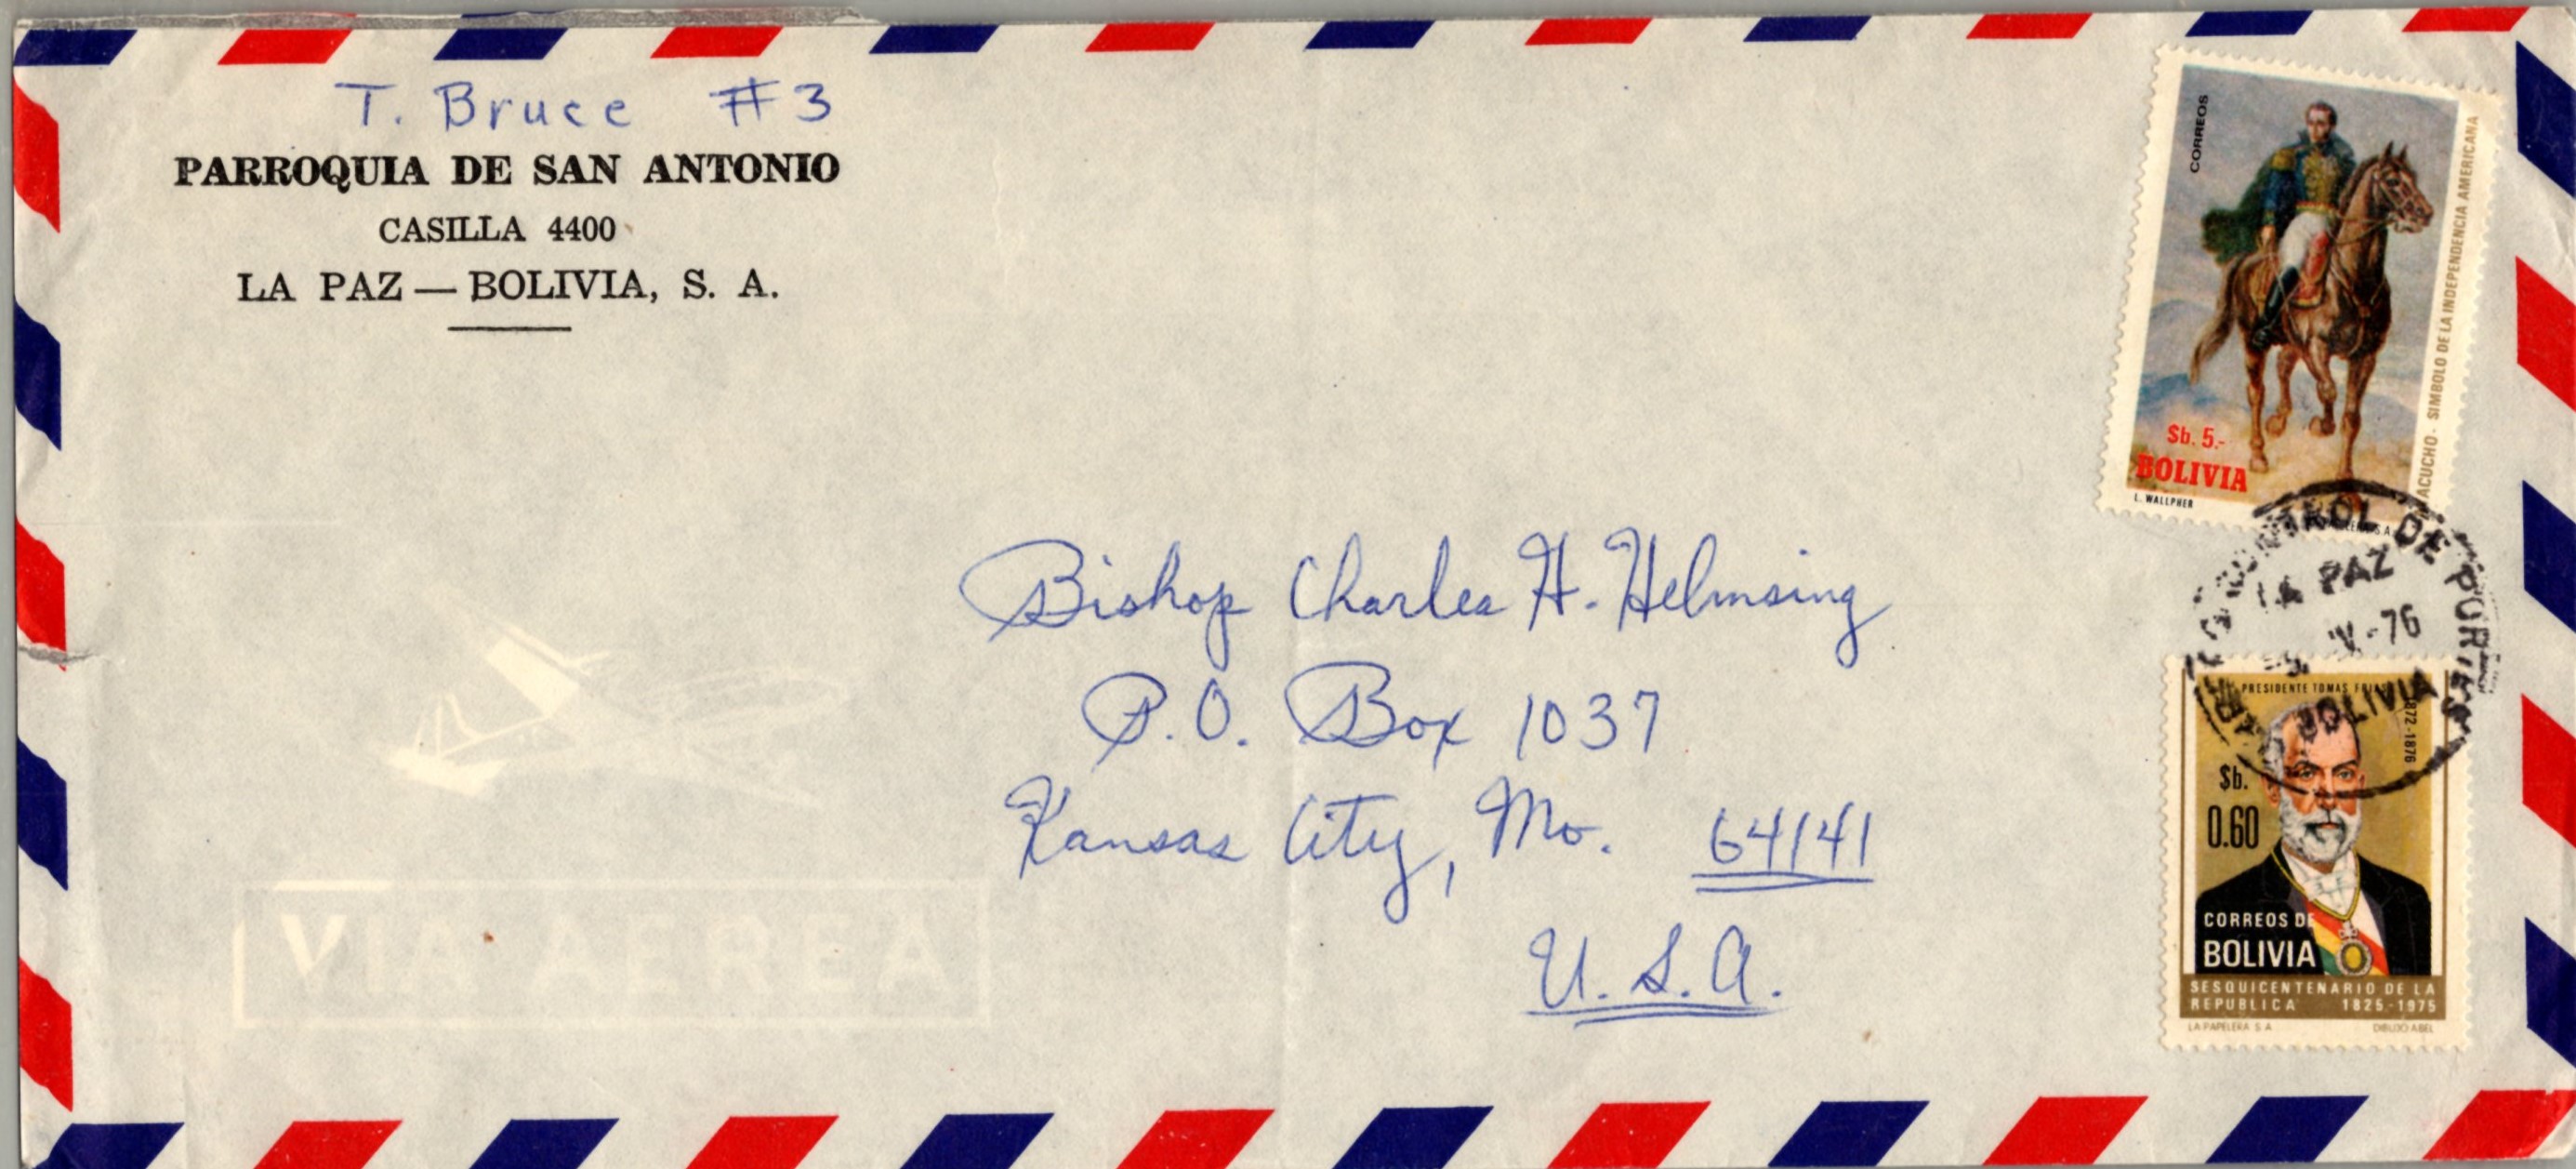 T. Bruce #3
PARROQUIA DE SAN ANTONIO
CASILLA 4400
LA PAZ — BOLIVIA, S. A.
CORREOS
SIMBOLO DE LA INDEPENDENCIA AMERICANA
$b. 5.-
BOLIVIA
L. WALLPHER
Bishop Charles H. Helmsing
P.O. Box 1037
Kansas City, Mo. 64141
U.S.A.
VIA AEREA
CONTROL DE
LA PAZ
V-76
BOLIVIA
PRESIDENTE TOMAS FRIAS
1872-1876
$b.
0.60
CORREOS DE
BOLIVIA
SESQUICENTENARIO DE LA
REPUBLICA 1825-1975
LA PAPELERA S A DIBUJO ABEL